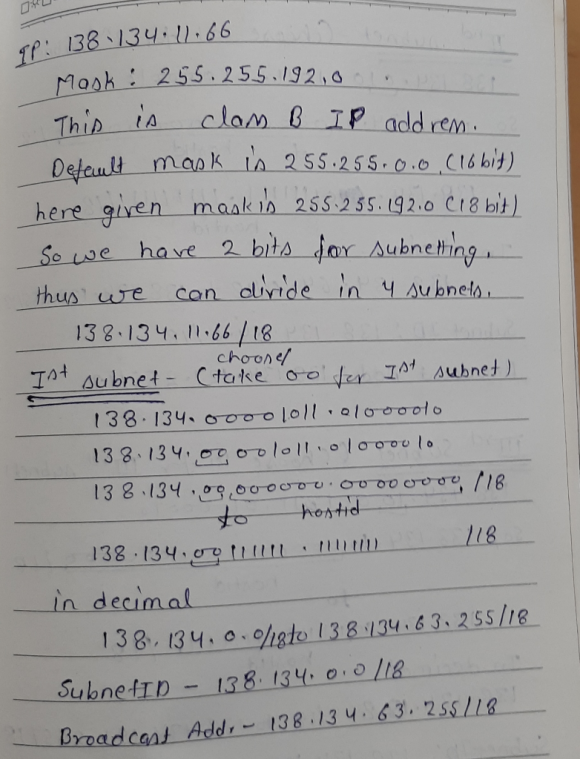 IP: 138.134.11.66
Mask: 255.255.192.0
This is class B IP address.
Default mask is 255.255.0.0 (16 bit)
here given mask is 255.255.192.0 (18 bit)
So we have 2 bits for subnetting.
thus we can divide in 4 subnets.
138.134.11.66/18
choose/
Ist subnet - (take 00 for Ist subnet)
138.134.00001011.01000010
138.134.00.001011.01000010
138.134.00.000000.00000000./18
to hostid
138.134.00111111.11111111 /18
in decimal
138.134.0.0/18 to 138.134.63.255/18
SubnetID - 138.134.0.0/18
Broadcast Addr. - 138.134.63.255/18